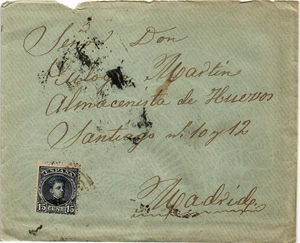 Señor Don
Martín
Almacenista de Huevos
Santiago n. 10 y 12
Madrid
ESPAÑA
15 CENT. 15